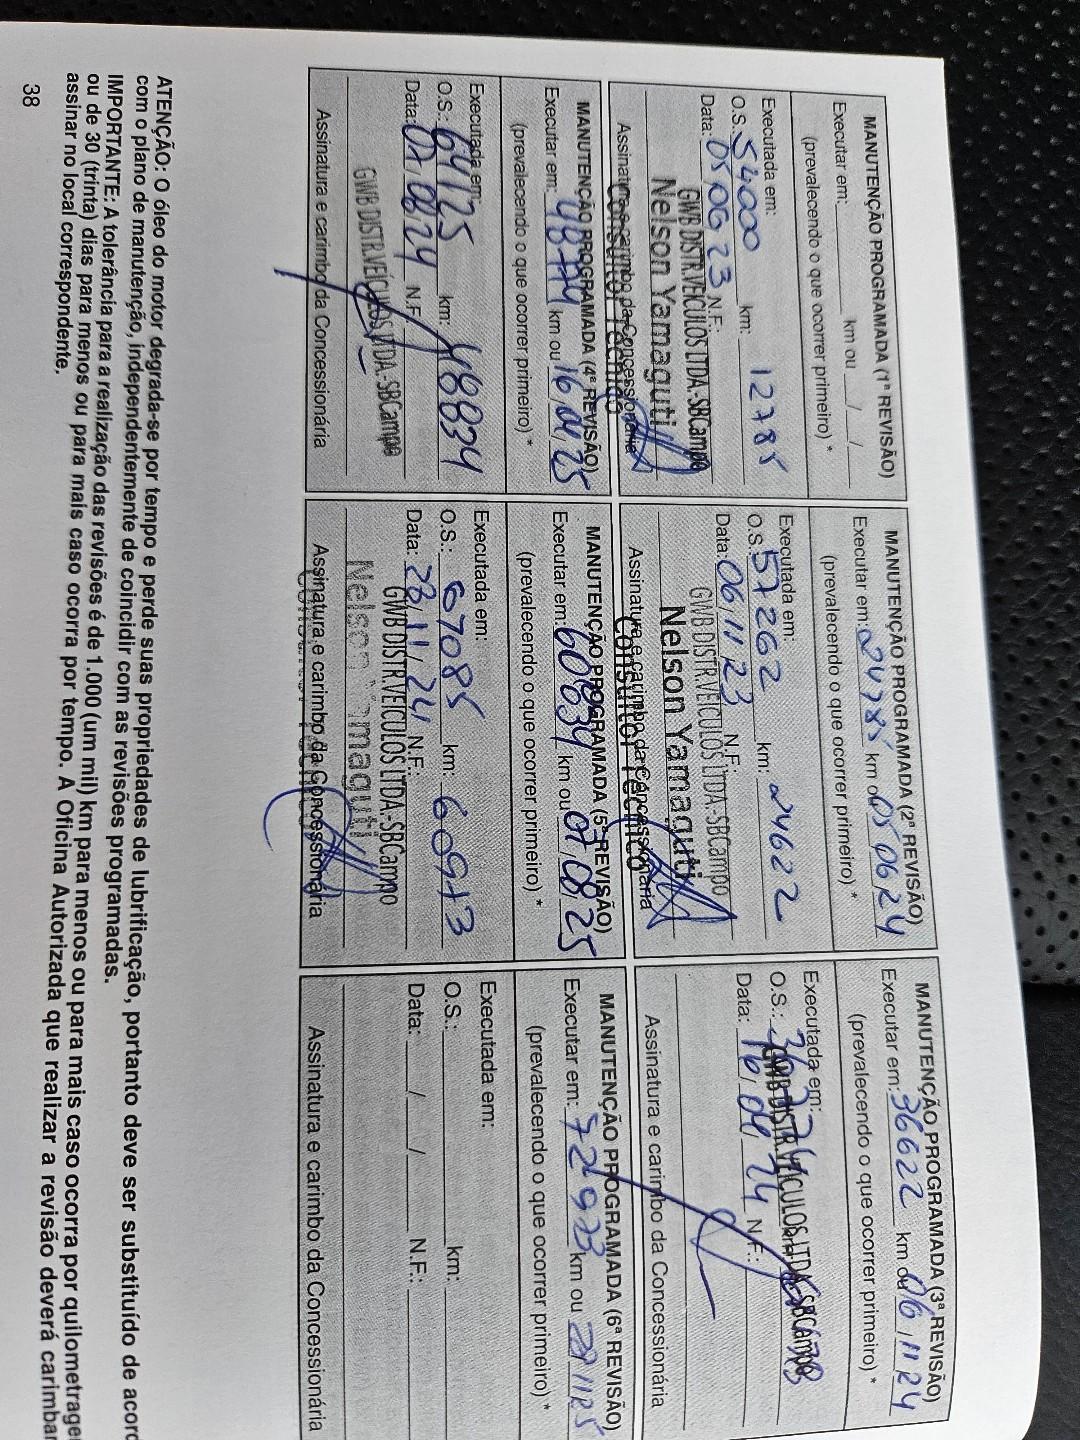 MANUTENÇÃO PROGRAMADA (1ª REVISÃO)
Executar em: km ou / /
(prevalecendo o que ocorrer primeiro) *
Executada em:
O.S.: 54000 km: 12785
Data: 05 06 23 N.F.:
GWB DISTR.VEÍCULOS LTDA.-SBCampo
Nelson Yamaguti
Consultor Técnico
Assinatura e carimbo da Concessionária
MANUTENÇÃO PROGRAMADA (2ª REVISÃO)
Executar em: 24785 km ou 05 06 24
(prevalecendo o que ocorrer primeiro) *
Executada em:
O.S.: 57262 km: 24622
Data: 06 / 11 / 23 N.F.:
GWB DISTR.VEÍCULOS LTDA.-SBCampo
Nelson Yamaguti
Consultor Técnico
Assinatura e carimbo da Concessionária
MANUTENÇÃO PROGRAMADA (3ª REVISÃO)
Executar em: 36622 km ou 06 / 11 24
(prevalecendo o que ocorrer primeiro) *
Executada em:
O.S.:
GWB DISTR.VEÍCULOS LTDA.-SBCampo
Data: 16 / 01 / 24 N.F.:
Assinatura e carimbo da Concessionária
MANUTENÇÃO PROGRAMADA (4ª REVISÃO)
Executar em: 48774 km ou 16 / 01 / 25
(prevalecendo o que ocorrer primeiro) *
Executada em:
O.S.: 64125 km: 48834
Data: 07 / 08 / 24 N.F.:
GWB DISTR.VEÍCULOS LTDA.-SBCampo
Assinatura e carimbo da Concessionária
MANUTENÇÃO PROGRAMADA (5ª REVISÃO)
Executar em: 60834 km ou 07 08 / 25
(prevalecendo o que ocorrer primeiro) *
Executada em:
O.S.: 67085 km: 60973
Data: 28 / 11 / 24 N.F.:
GWB DISTR.VEÍCULOS LTDA.-SBCampo
Nelson Yamaguti
Consultor Técnico
Assinatura e carimbo da Concessionária
MANUTENÇÃO PROGRAMADA (6ª REVISÃO)
Executar em: 72973 km ou 28 11 25
(prevalecendo o que ocorrer primeiro) *
Executada em:
O.S.: km:
Data: / / N.F.:
Assinatura e carimbo da Concessionária
ATENÇÃO: O óleo do motor degrada-se por tempo e perde suas propriedades de lubrificação, portanto deve ser substituído de acord
com o plano de manutenção, independentemente de coincidir com as revisões programadas.
IMPORTANTE: A tolerância para a realização das revisões é de 1.000 (um mil) km para menos ou para mais caso ocorra por quilometrage
ou de 30 (trinta) dias para menos ou para mais caso ocorra por tempo. A Oficina Autorizada que realizar a revisão deverá carimbar
assinar no local correspondente.
38